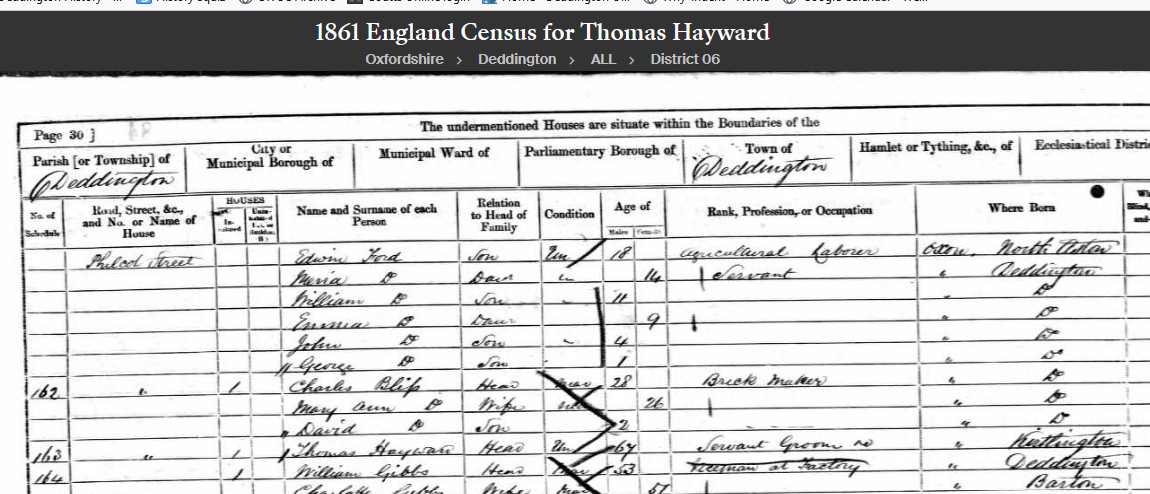 1861 England Census for Thomas Hayward
Oxfordshire > Deddington > ALL > District 06
Page 30 ]
The undermentioned Houses are situate within the Boundaries of the
Parish [or Township] of City or Municipal Borough of Municipal Ward of Parliamentary Borough of Town of Hamlet or Tything, &c., of Ecclesiastical Distri
Deddington Deddington
No. of Schedule Road, Street, &c., and No. or Name of House HOUSES Name and Surname of each Person Relation to Head of Family Condition Age of Males Females Rank, Profession, or Occupation Where Born
Philcot Street Edwin Ford Son Un 18 Agricultural Laborer Oxon. North Aston
Maria Do Daur 14 Servant " Deddington
William Do Son 11 " Do
Emma Do Daur 9 " Do
John Do Son 4 " Do
George Do Son 1 " Do
162 " 1 Charles Bliss Head Mar 28 Brick Maker " Do
Mary Ann Do Wife 26 " Do
David Do Son 2 " Do
163 " 1 Thomas Hayward Head Un 67 Servant Groom " Kirtlington
164 1 William Gibbs Head Mar 53 at Factory " Deddington
Charlotte Gibbs Wife Mar 57 " Barton